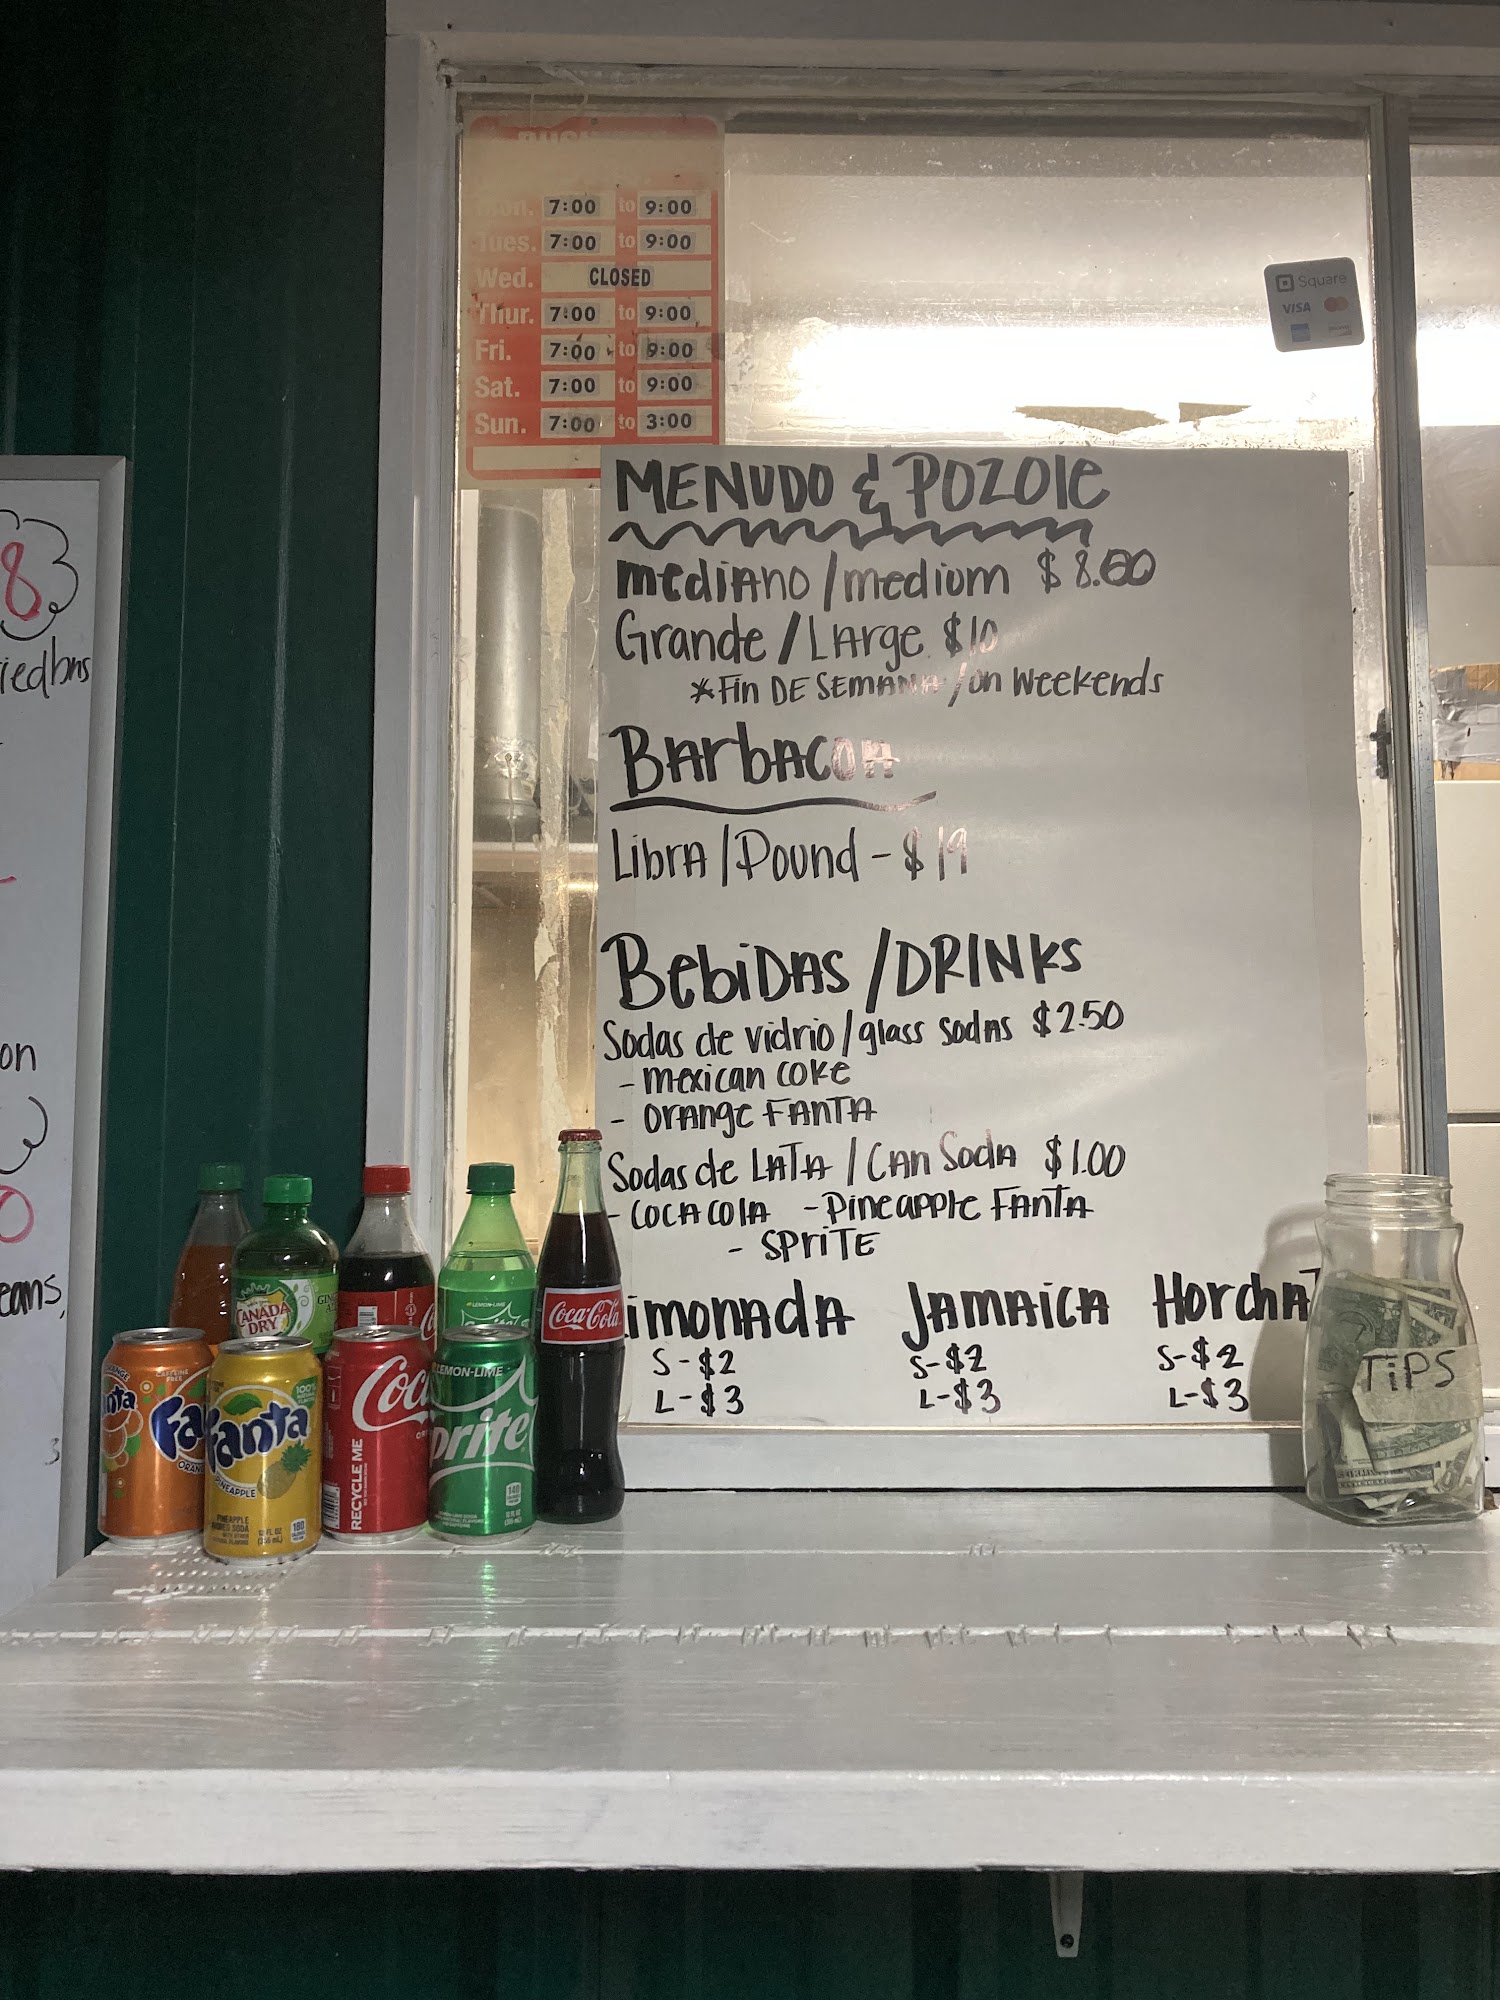 Mon. 7:00 to 9:00
Tues. 7:00 to 9:00
Wed. CLOSED
Thur. 7:00 to 9:00
Fri. 7:00 to 9:00
Sat. 7:00 to 9:00
Sun. 7:00 to 3:00
Square
VISA
MENUDO & POZOLE
mediano/medium $8.00
Grande/Large $10
*Fin DE SEMANA/on weekends
Barbacoa
Libra/Pound - $19
Bebidas/DRINKS
Sodas de vidrio/glass sodas $2.50
- mexican coke
- orange FANTA
Sodas de LATA/Can Soda $1.00
- COCA COLA - Pineapple FANTA
- SPRITE
imonada JAMAICA Horchat
S-$2 S-$2 S-$2
L-$3 L-$3 L-$3
TIPS
8
on
eans,
3
CANADA
DRY
LEMON-LIME
Coca-Cola
CAFFEINE
FREE
Fanta
PINEAPPLE
PINEAPPLE
100%
180
12 FL OZ
(355 mL)
Coc
RECYCLE ME
LEMON-LIME
Sprite
140